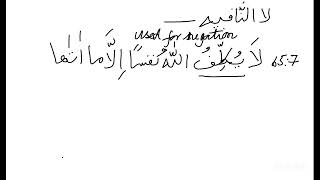 لا النَّافيه
used for negation
لَا يُكَلِّفُ اللّٰهُ نَفْسًا اِلَّا مَا اٰتٰهَا 65:7